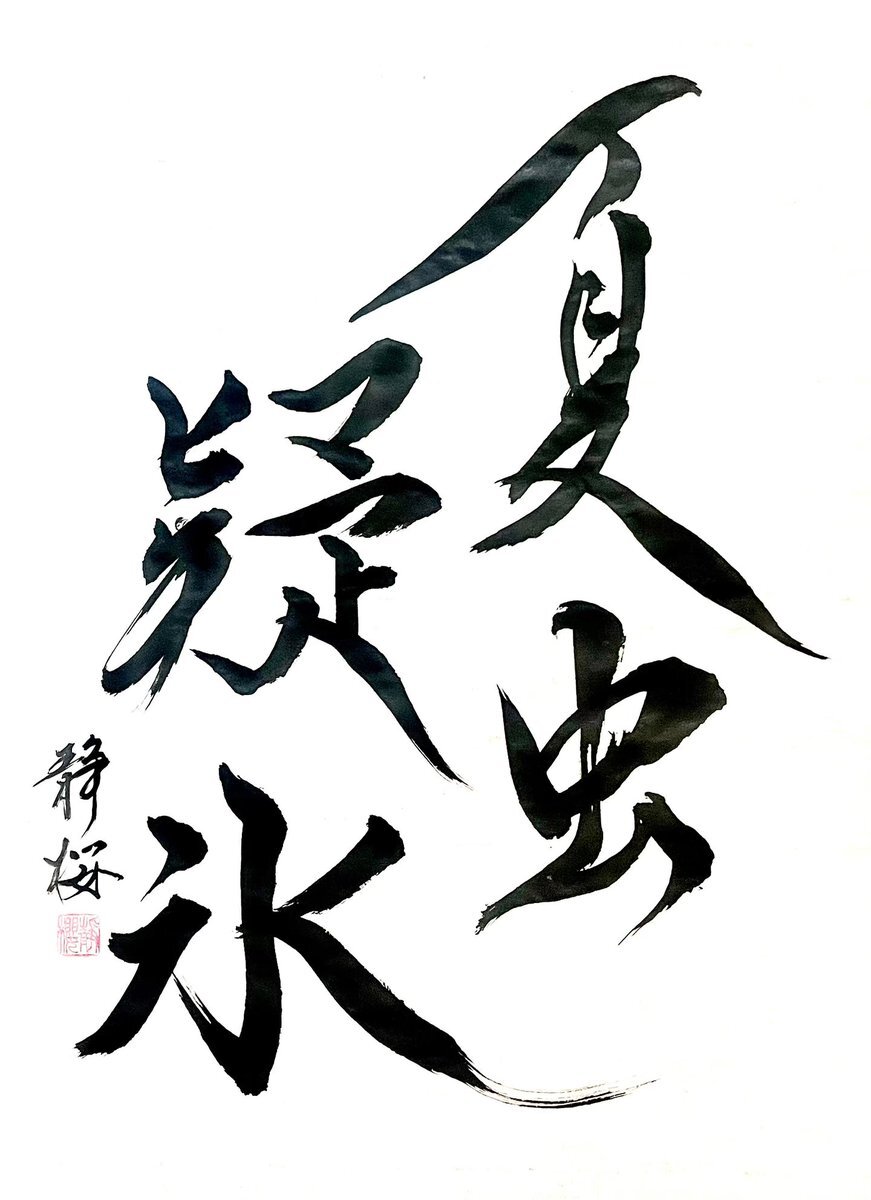 夏虫
疑氷
静桜